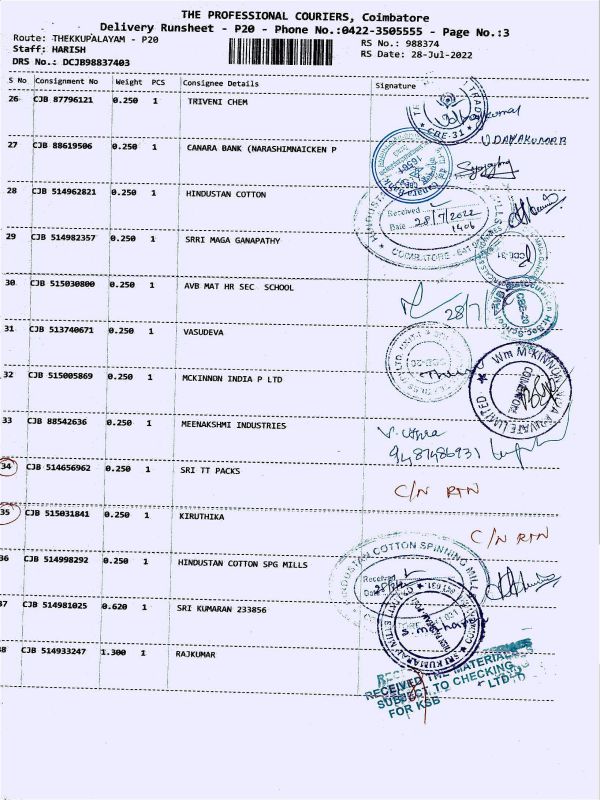 THE PROFESSIONAL COURIERS, Coimbatore
Delivery Runsheet - P20 - Phone No.:0422-3505555 - Page No.:3
Route: THEKKUPALAYAM - P20
RS No.: 988374
Staff: HARISH
RS Date: 28-Jul-2022
DRS No.: DCJB98837403
S No Consignment No Weight PCS Consignee Details Signature
26 CJB 87796121 0.250 1 TRIVENI CHEM
CBE-31
27 CJB 88619506 0.250 1 CANARA BANK (NARASHIMNAICKEN P
UDAYAKUMAR
28 CJB 514962821 0.250 1 HINDUSTAN COTTON
Received
28/7/2022
Date 1406
COIMBATORE
29 CJB 514982357 0.250 1 SRRI MAGA GANAPATHY
30 CJB 515030800 0.250 1 AVB MAT HR SEC SCHOOL
28/7
CBE-20
31 CJB 513740671 0.250 1 VASUDEVA
32 CJB 515005869 0.250 1 MCKINNON INDIA P LTD
Wm MCKINNON INDIA PRIVATE LIMITED
COIMBATORE
33 CJB 88542636 0.250 1 MEENAKSHMI INDUSTRIES
9487486931
34 CJB 514656962 0.250 1 SRI TT PACKS
C/N RTN
35 CJB 515031841 0.250 1 KIRUTHIKA
C/N RTN
36 CJB 514998292 0.250 1 HINDUSTAN COTTON SPG MILLS
HINDUSTAN COTTON SPINNING MILLS
Received
Date
37 CJB 514981025 0.620 1 SRI KUMARAN 233856
SRI KUMARAN
38 CJB 514933247 1.300 1 RAJKUMAR
RECEIVED THE MATERIALS
SUBJECT TO CHECKING
FOR KSB LTD